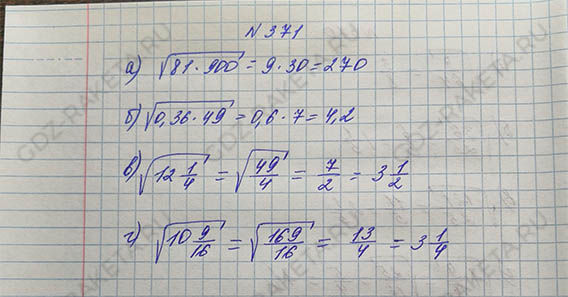 N 371
а) √81 · 900 = 9 · 30 = 270
б) √0,36 · 49 = 0,6 · 7 = 4,2
в) √12 1/4 = √49/4 = 7/2 = 3 1/2
г) √10 9/16 = √169/16 = 13/4 = 3 1/4
GDZ-RAKETA.RU
GDZ-RAKETA.RU
GDZ-RAKETA.RU